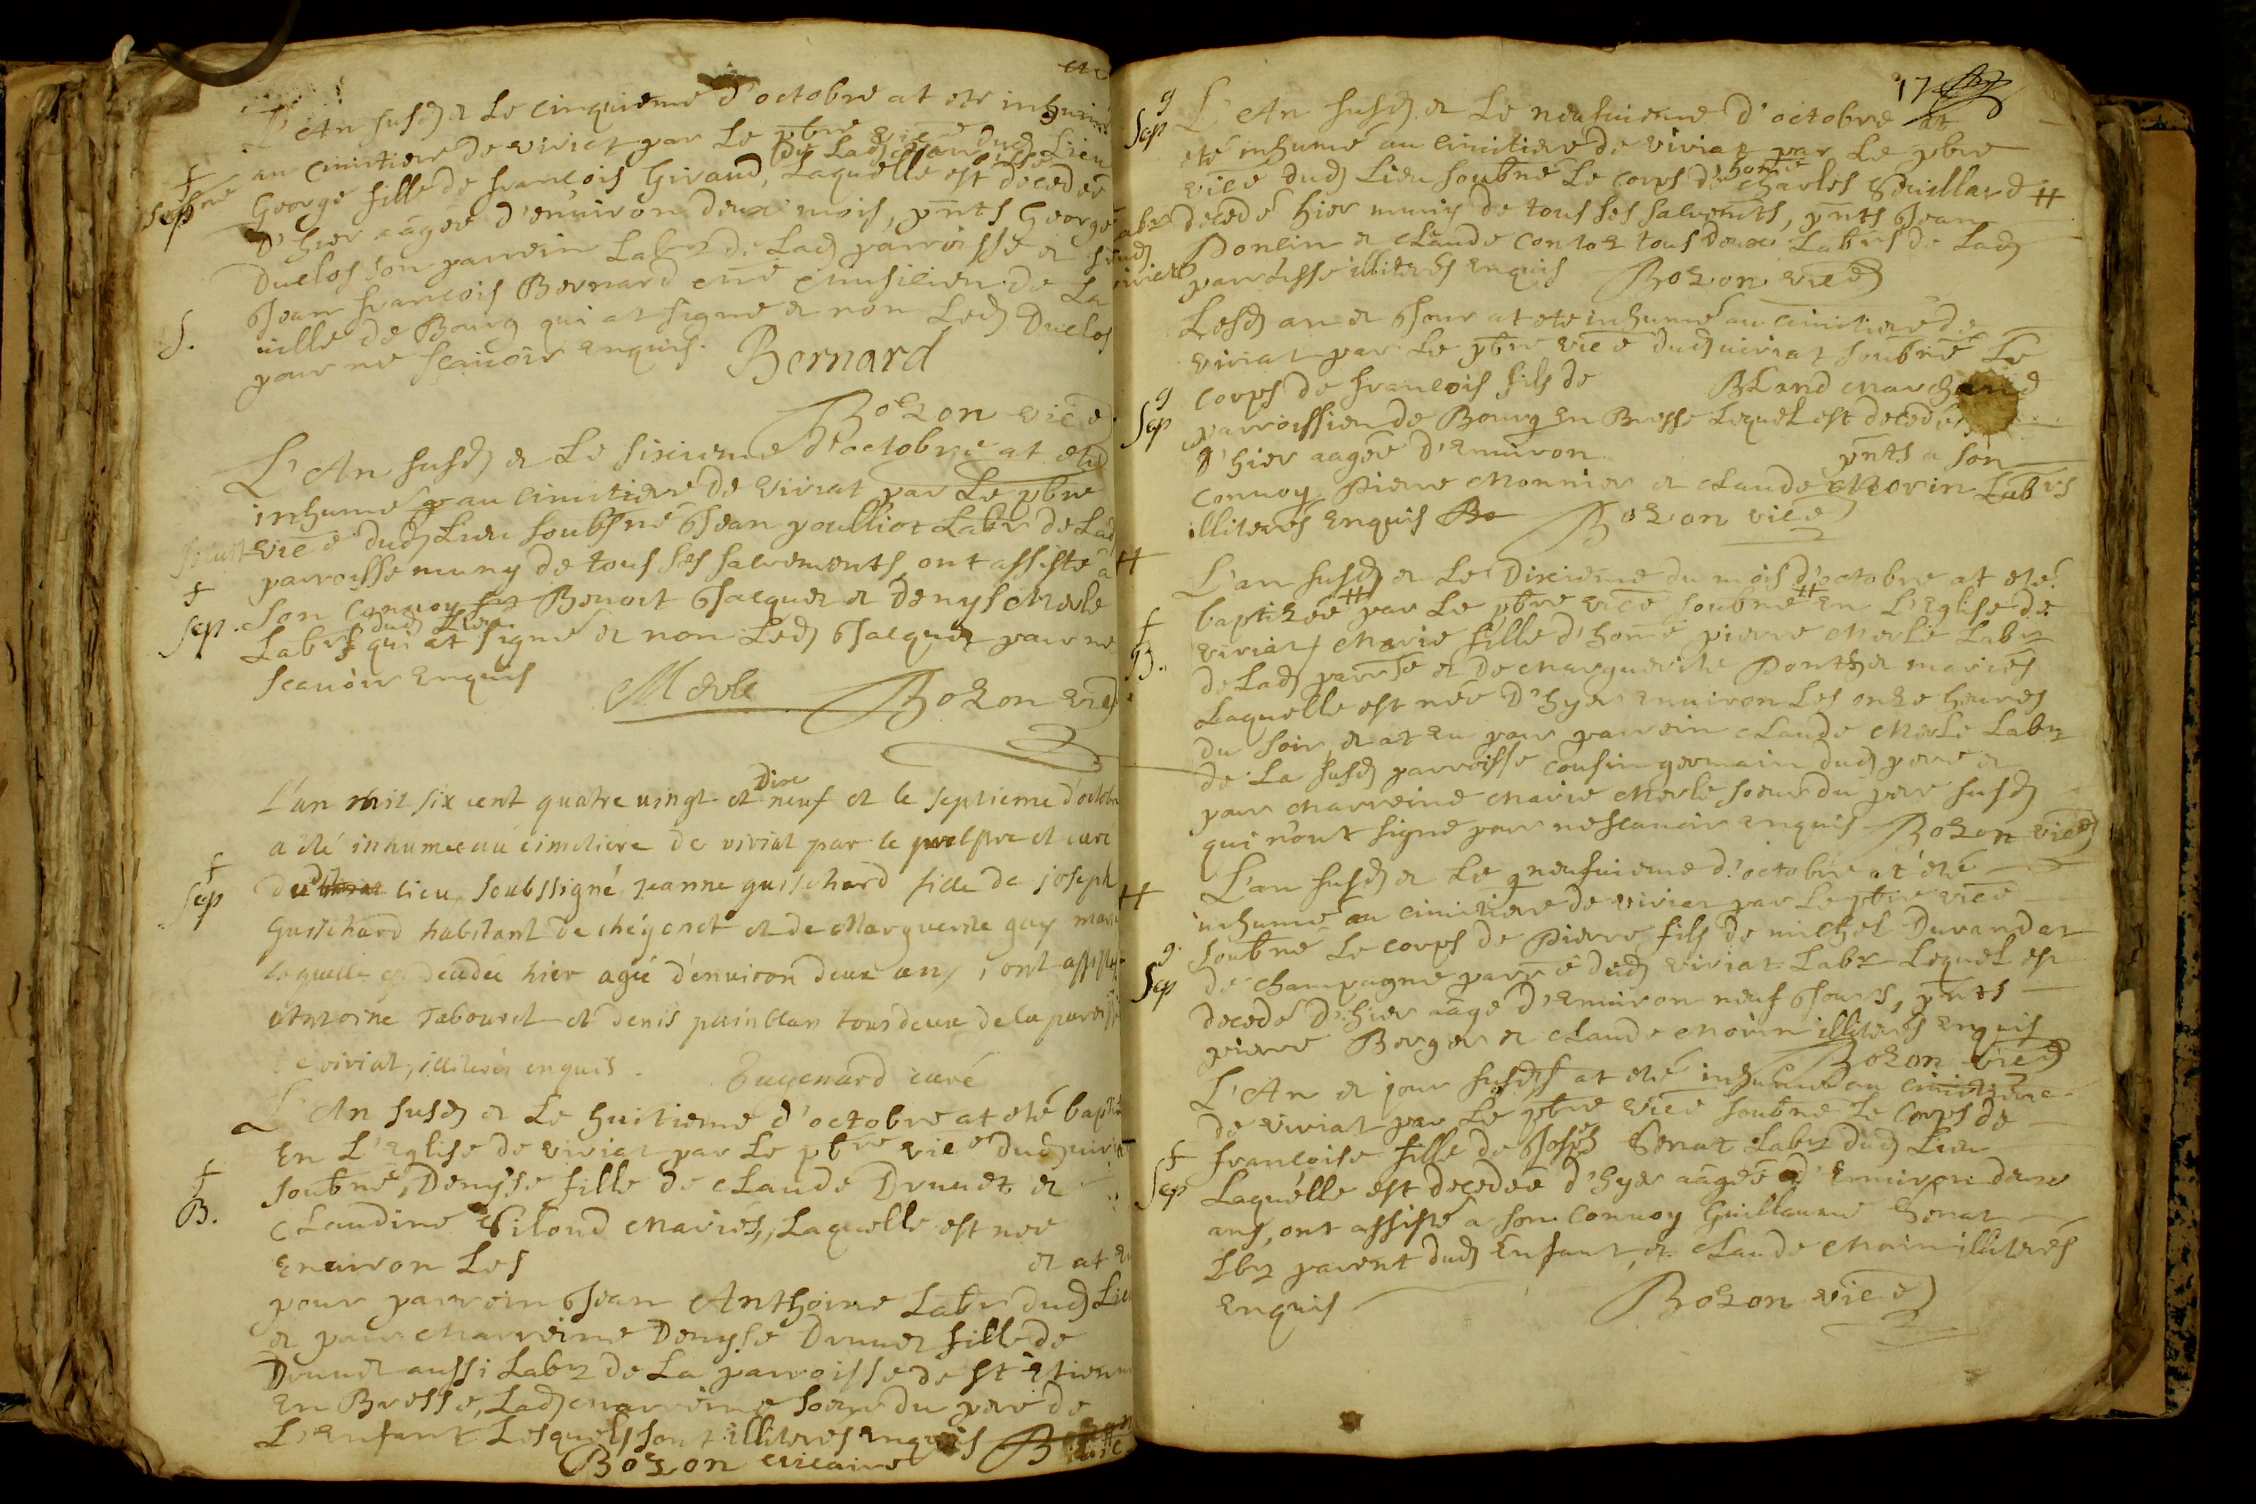 L'An susd et Le cinquieme d'octobre at ete inhumé
au cimitiere de viriat par Le pbre vicre dud Lieu
George fille de francois Giraud, Laquelle est decedeé
D'hier aageé d'enuiron deux mois, pnts George
Duclos son parrein Labr de Lad parroisse et
Jean francois Bernard Me Musisien de La
uille de Bourg qui at signe et non Led Duclos
pour ne scauoir enquis. Bernard
Bozon vice
L'An susd et Le sixieme d'octobre at eté
inhumé au cimitiere de viriat par Le pbre
vice dud Lieu soubsne Jean poulliot Labr de Lad
parroisse muny de tous ses sacrements ont assisté a
son conuoy Benoit Jacquet et Denys Merle
Labrs dud Lieu qui at signé et non Led Jacquet pour ne
scauoir enquis Merle Bozon vice
L'an mil six cent quatre uingt et dix neuf et le septieme d'octobre
a été inhumee au cimetiere de viriat par le prestre et curé
dud lieu soubssigné jeanne guischard fille de joseph
guischard habitant de et de Marguerite guy
laquelle est decedée hier agée d'enuiron deux ans, ont assisté
Antoine Tabouret et denis painblan tous deux de la paroisse
de viriat, illiterés enquis. curé
L'An susd et Le huitieme d'octobre at eté
En L'Eglise de viriat par Le pbre vice dud
soubne, Denyse fille de Claude Druuet et
Claudine Mariés, Laquelle est neé
Enuiron Les et at
pour parrein Jean Anthoine Labr dud Lieu
et pour Marreine Denyse Druuet fille de
Druuet aussi Labr de La parroisse de st Etienne
En Bresse, Lad Marreine soeur du pere de
L'Enfant Lesquels sont illiteres enquis
Bozon vicaire
17
L'An susd et Le neufuieme d'octobre at
eté inhumé au cimitiere de viriat par Le pbre
vice dud Lieu soubné Le corps d'home Charles
decedé hier muny de tous ses sacremts, pnts Jean
Poncin et Claude tous deux Labrs de Lad
parroisse illiterés enquis Bozon vice
Lesd an et Jour at eté inhumé au cimitiere de
viriat par Le pbre vice dud viriat soubné Le
corps de francois fils de BLand Marchand
parroissien de Bourg en Bresse Lequel est decedé
d'hier aageé d'enuiron pnts a son
conuoy Pierre Monnier et Claude Morin Labrs
illiterés enquis Bozon vice
L'an susd et Le Dixieme du mois d'octobre at eté
baptizeé par Le pbre vice soubné en L'Eglise de
viriat Marie fille d'home pierre Merle Labr
de Lad parrse et de Marguerite Ponthet mariés
Laquelle est neé d'hyer enuiron Les onze heures
du soir et at eu pour parrein Claude Merle Labr
de La susd parroisse cousin germain dud pere et
pour Marreine Marie Merle soeur du pere susd
qui n'ont signé pour ne scauoir enquis Bozon vice
L'an susd et Le neufuieme d'octobre at eté
inhumé au cimitiere de viriat par Le pbre vice
soubné Le corps de Pierre fils de michel Durandat
de champagne parrse dud viriat Labr Lequel est
decedé d'hier aagé d'enuiron neuf Jours, pnts
pierre Berger et Claude Morin illiterés enquis
Bozon vice
L'An et jour susds at eté inhumé au cimitiere
de viriat par Le pbre vice soubné Le corps de
francoise fille de Joseph Labr dud Lieu
Laquelle est decedeé d'hyer aageé d'enuiron deux
ans, ont assisté a son conuoy Guillaume
Lbr parent dud Enfant, et Claude Morin illiterés
enquis Bozon vice